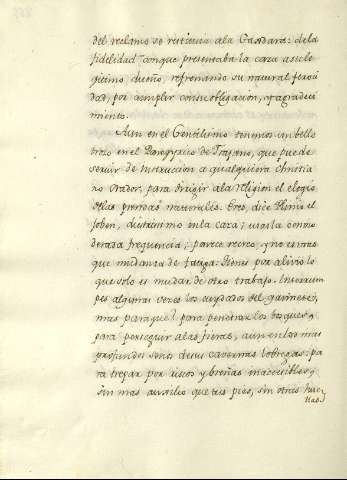 del reclamo se resistia a la Casadara: de la
fidelidad con que presentaba la caza a su le
gitimo dueño, refrenando su natural feroci
dad, por cumplir con su obligacion, y agradeci
miento.
Aun en el Gentilismo tenemos un bello
trozo en el Panegyrico de Trajano, que puede
servir de instruccion a qualquiera Christia
no Orador, para dirigir a la religion el elogio
de las prendas naturales. Eres, dice Plinio el
Joben, diestrisimo en la caza; usas la con mo
derada frequencia; parece recreo, y no es mas
que mudanza de fatiga: tienes por alivio lo
que solo es mudar de otro trabajo. Interrum
pes algunas veces los cuydados del gavinete,
mas para què? para penetrar los bosques, y
para perseguir a las fieras, aun en los mas
profundos senos de sus cavernas lobregas: pa
ra trepar por riscos y breñas inaccesibles, y
sin mas auxilio que tus pies, sin otras hue
llas